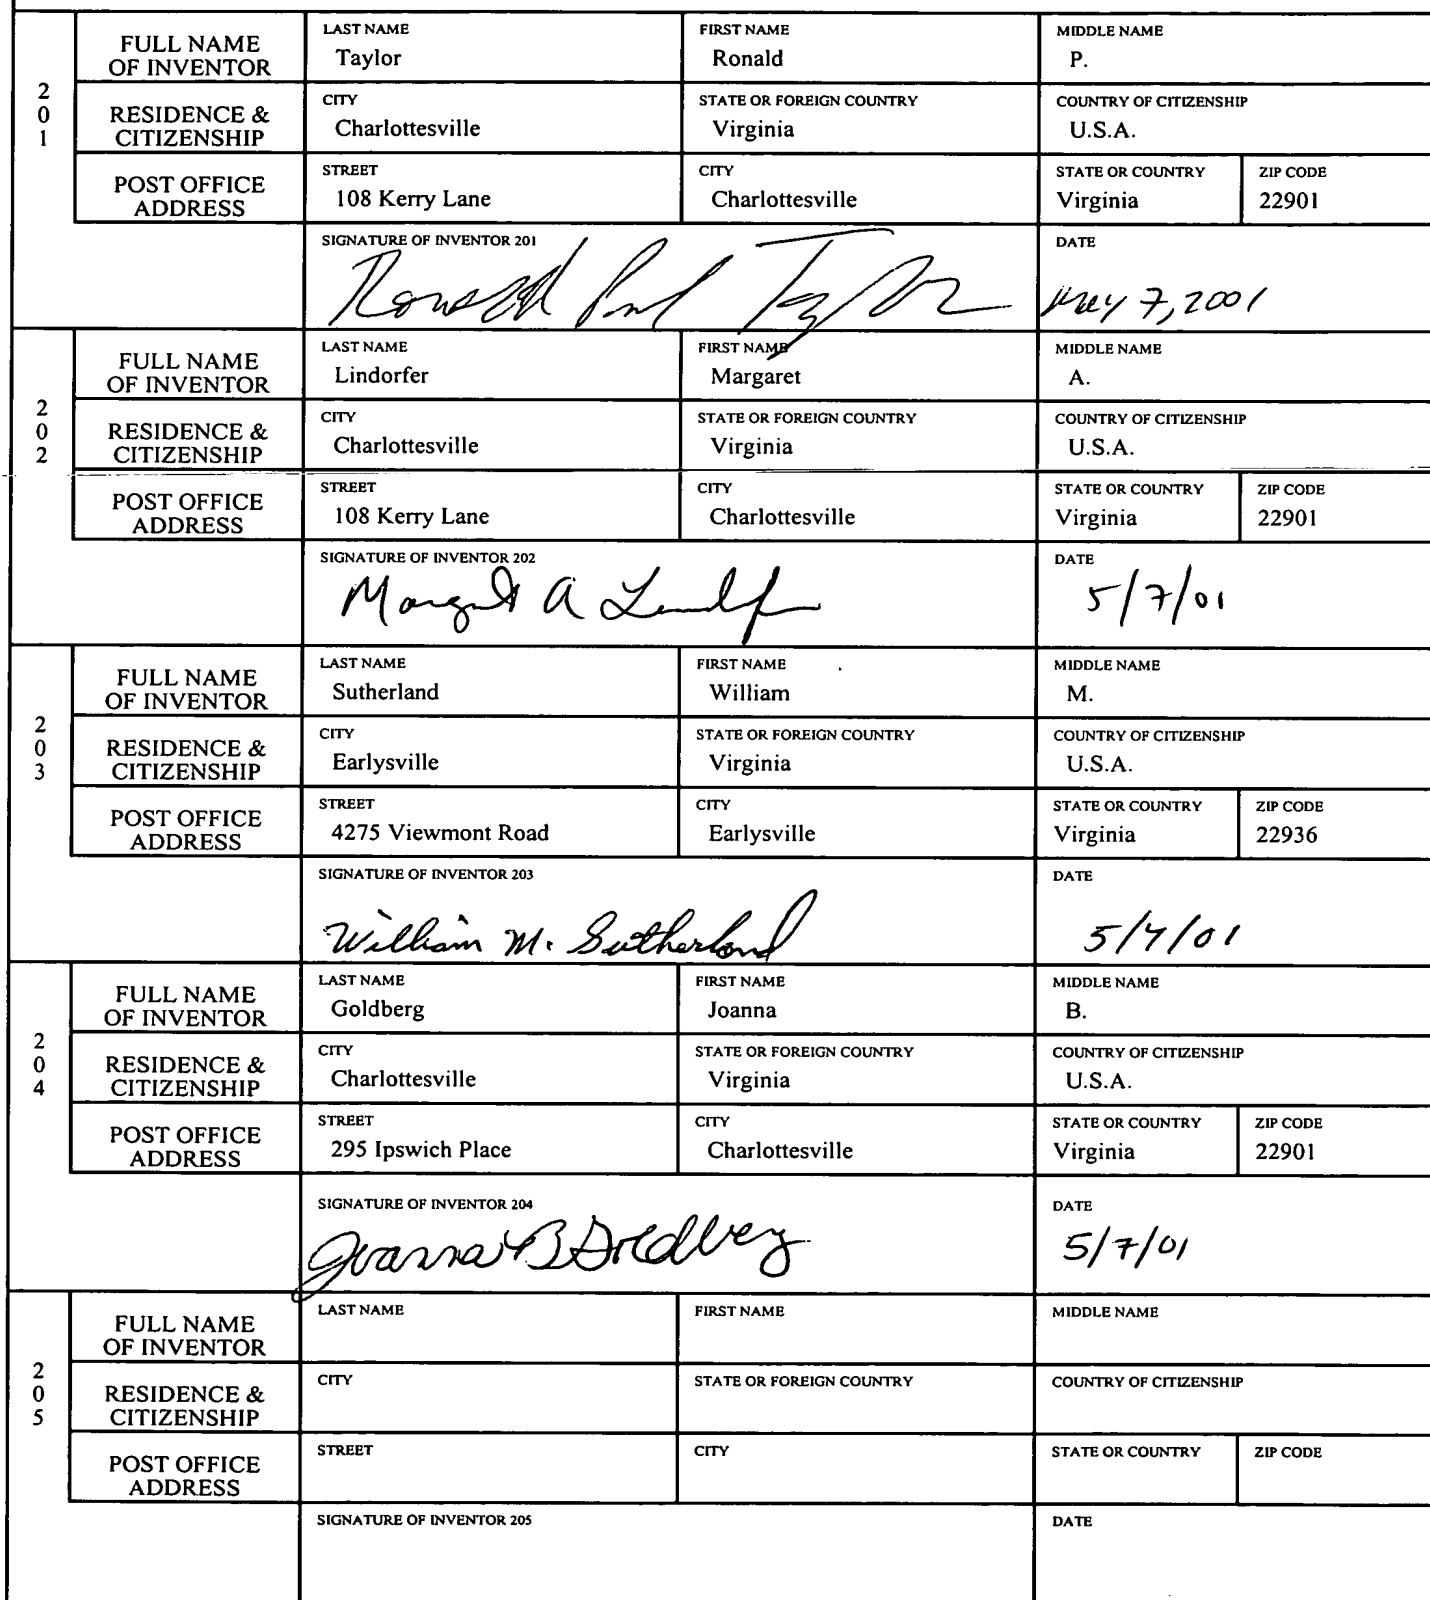 2 0 1
FULL NAME OF INVENTOR
LAST NAME
Taylor
FIRST NAME
Ronald
MIDDLE NAME
P.
RESIDENCE & CITIZENSHIP
CITY
Charlottesville
STATE OR FOREIGN COUNTRY
Virginia
COUNTRY OF CITIZENSHIP
U.S.A.
POST OFFICE ADDRESS
STREET
108 Kerry Lane
CITY
Charlottesville
STATE OR COUNTRY
Virginia
ZIP CODE
22901
SIGNATURE OF INVENTOR 201
Ronald Paul Taylor
DATE
May 7, 2001
2 0 2
FULL NAME OF INVENTOR
LAST NAME
Lindorfer
FIRST NAME
Margaret
MIDDLE NAME
A.
RESIDENCE & CITIZENSHIP
CITY
Charlottesville
STATE OR FOREIGN COUNTRY
Virginia
COUNTRY OF CITIZENSHIP
U.S.A.
POST OFFICE ADDRESS
STREET
108 Kerry Lane
CITY
Charlottesville
STATE OR COUNTRY
Virginia
ZIP CODE
22901
SIGNATURE OF INVENTOR 202
Margaret A Lindorfer
DATE
5/7/01
2 0 3
FULL NAME OF INVENTOR
LAST NAME
Sutherland
FIRST NAME
William
MIDDLE NAME
M.
RESIDENCE & CITIZENSHIP
CITY
Earlysville
STATE OR FOREIGN COUNTRY
Virginia
COUNTRY OF CITIZENSHIP
U.S.A.
POST OFFICE ADDRESS
STREET
4275 Viewmont Road
CITY
Earlysville
STATE OR COUNTRY
Virginia
ZIP CODE
22936
SIGNATURE OF INVENTOR 203
William M. Sutherland
DATE
5/7/01
2 0 4
FULL NAME OF INVENTOR
LAST NAME
Goldberg
FIRST NAME
Joanna
MIDDLE NAME
B.
RESIDENCE & CITIZENSHIP
CITY
Charlottesville
STATE OR FOREIGN COUNTRY
Virginia
COUNTRY OF CITIZENSHIP
U.S.A.
POST OFFICE ADDRESS
STREET
295 Ipswich Place
CITY
Charlottesville
STATE OR COUNTRY
Virginia
ZIP CODE
22901
SIGNATURE OF INVENTOR 204
Joanna B Goldberg
DATE
5/7/01
2 0 5
FULL NAME OF INVENTOR
LAST NAME
FIRST NAME
MIDDLE NAME
RESIDENCE & CITIZENSHIP
CITY
STATE OR FOREIGN COUNTRY
COUNTRY OF CITIZENSHIP
POST OFFICE ADDRESS
STREET
CITY
STATE OR COUNTRY
ZIP CODE
SIGNATURE OF INVENTOR 205
DATE